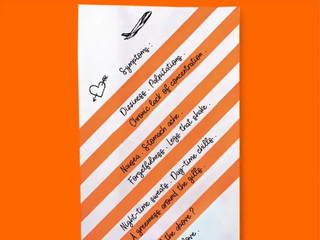 Symptoms :
Dizziness . Palpitations .
Chronic lack of concentration .
Nausea . Stomach ache .
Forgetfulness . Legs that shake .
Night-time sweats . Day-time chills .
A greenness around the gills .
the above ?
love .